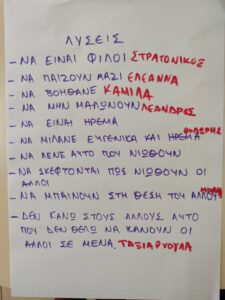 ΛΥΣΕΙΣ
- ΝΑ ΕΙΝΑΙ ΦΙΛΟΙ ΣΤΡΑΤΟΝΙΚΟΣ
- ΝΑ ΠΑΙΖΟΥΝ ΜΑΖΙ ΕΛΕΑΝΝΑ
- ΝΑ ΒΟΗΘΑΝΕ ΚΑΜΙΛΑ
- ΝΑ ΜΗΝ ΜΑΛΩΝΟΥΝ ΛΕΑΝΔΡΟΣ
- ΝΑ ΕΙΝΑΙ ΗΡΕΜΑ
- ΝΑ ΜΙΛΑΝΕ ΕΥΓΕΝΙΚΑ ΚΑΙ ΗΡΕΜΑ
- ΝΑ ΛΕΝΕ ΑΥΤΟ ΠΟΥ ΝΙΩΘΟΥΝ
- ΝΑ ΣΚΕΦΤΟΝΤΑΙ ΠΩΣ ΝΙΩΘΟΥΝ ΟΙ
ΑΛΛΟΙ
- ΝΑ ΜΠΑΙΝΟΥΝ ΣΤΗ ΘΕΣΗ ΤΟΥ ΑΛΛΟΥ
- ΔΕΝ ΚΑΝΩ ΣΤΟΥΣ ΑΛΛΟΥΣ ΑΥΤΟ
ΠΟΥ ΔΕΝ ΘΕΛΩ ΝΑ ΚΑΝΟΥΝ ΟΙ
ΑΛΛΟΙ ΣΕ ΜΕΝΑ. ΤΑΞΙΑΡΧΟΥΛΑ